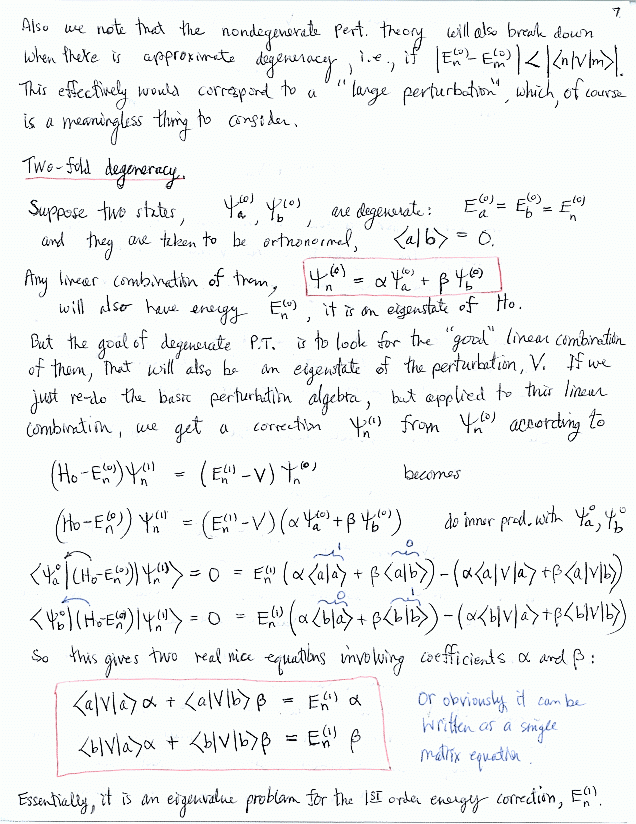 7
Also we note that the nondegenerate pert. theory will also break down
when there is approximate degeneracy, i.e., if |E_n^(0) - E_m^(0)| < |⟨n|V|m⟩|.
This effectively would correspond to a "large perturbation", which, of course
is a meaningless thing to consider.
Two-fold degeneracy.
Suppose two states, Ψ_a^(0), Ψ_b^(0), are degenerate: E_a^(0) = E_b^(0) = E_n^(0)
and they are taken to be orthonormal, ⟨a|b⟩ = 0.
Any linear combination of them, Ψ_n^(0) = αΨ_a^(0) + βΨ_b^(0)
will also have energy E_n^(0), it is an eigenstate of H₀.
But the goal of degenerate P.T. is to look for the "good" linear combination
of them, that will also be an eigenstate of the perturbation, V. If we
just re-do the basic perturbation algebra, but applied to this linear
combination, we get a correction Ψ_n^(1) from Ψ_n^(0) according to
(H₀ - E_n^(0)) Ψ_n^(1) = (E_n^(1) - V) Ψ_n^(0) becomes
(H₀ - E_n^(0)) Ψ_n^(1) = (E_n^(1) - V)(αΨ_a^(0) + βΨ_b^(0)) do inner prod. with Ψ_a^0, Ψ_b^0
1 0
⟨Ψ_a^0|(H₀ - E_n^(0))|Ψ_n^(1)⟩ = 0 = E_n^(1) (α⟨a|a⟩ + β⟨a|b⟩) - (α⟨a|V|a⟩ + β⟨a|V|b⟩)
0 1
⟨Ψ_b^0|(H₀ - E_n^(0))|Ψ_n^(1)⟩ = 0 = E_n^(1) (α⟨b|a⟩ + β⟨b|b⟩) - (α⟨b|V|a⟩ + β⟨b|V|b⟩)
So this gives two real nice equations involving coefficients α and β:
⟨a|V|a⟩α + ⟨a|V|b⟩β = E_n^(1) α
⟨b|V|a⟩α + ⟨b|V|b⟩β = E_n^(1) β
Or obviously it can be
written as a single
matrix equation.
Essentially, it is an eigenvalue problem for the 1ST order energy correction, E_n^(1).